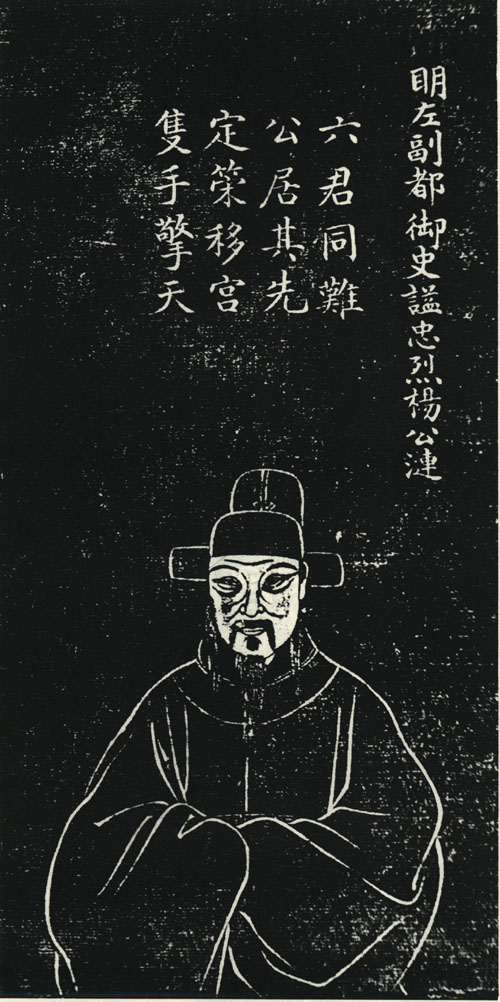 明左副都御史謚忠烈楊公漣
六君同難
公居其先
定策移宮
隻手擎天